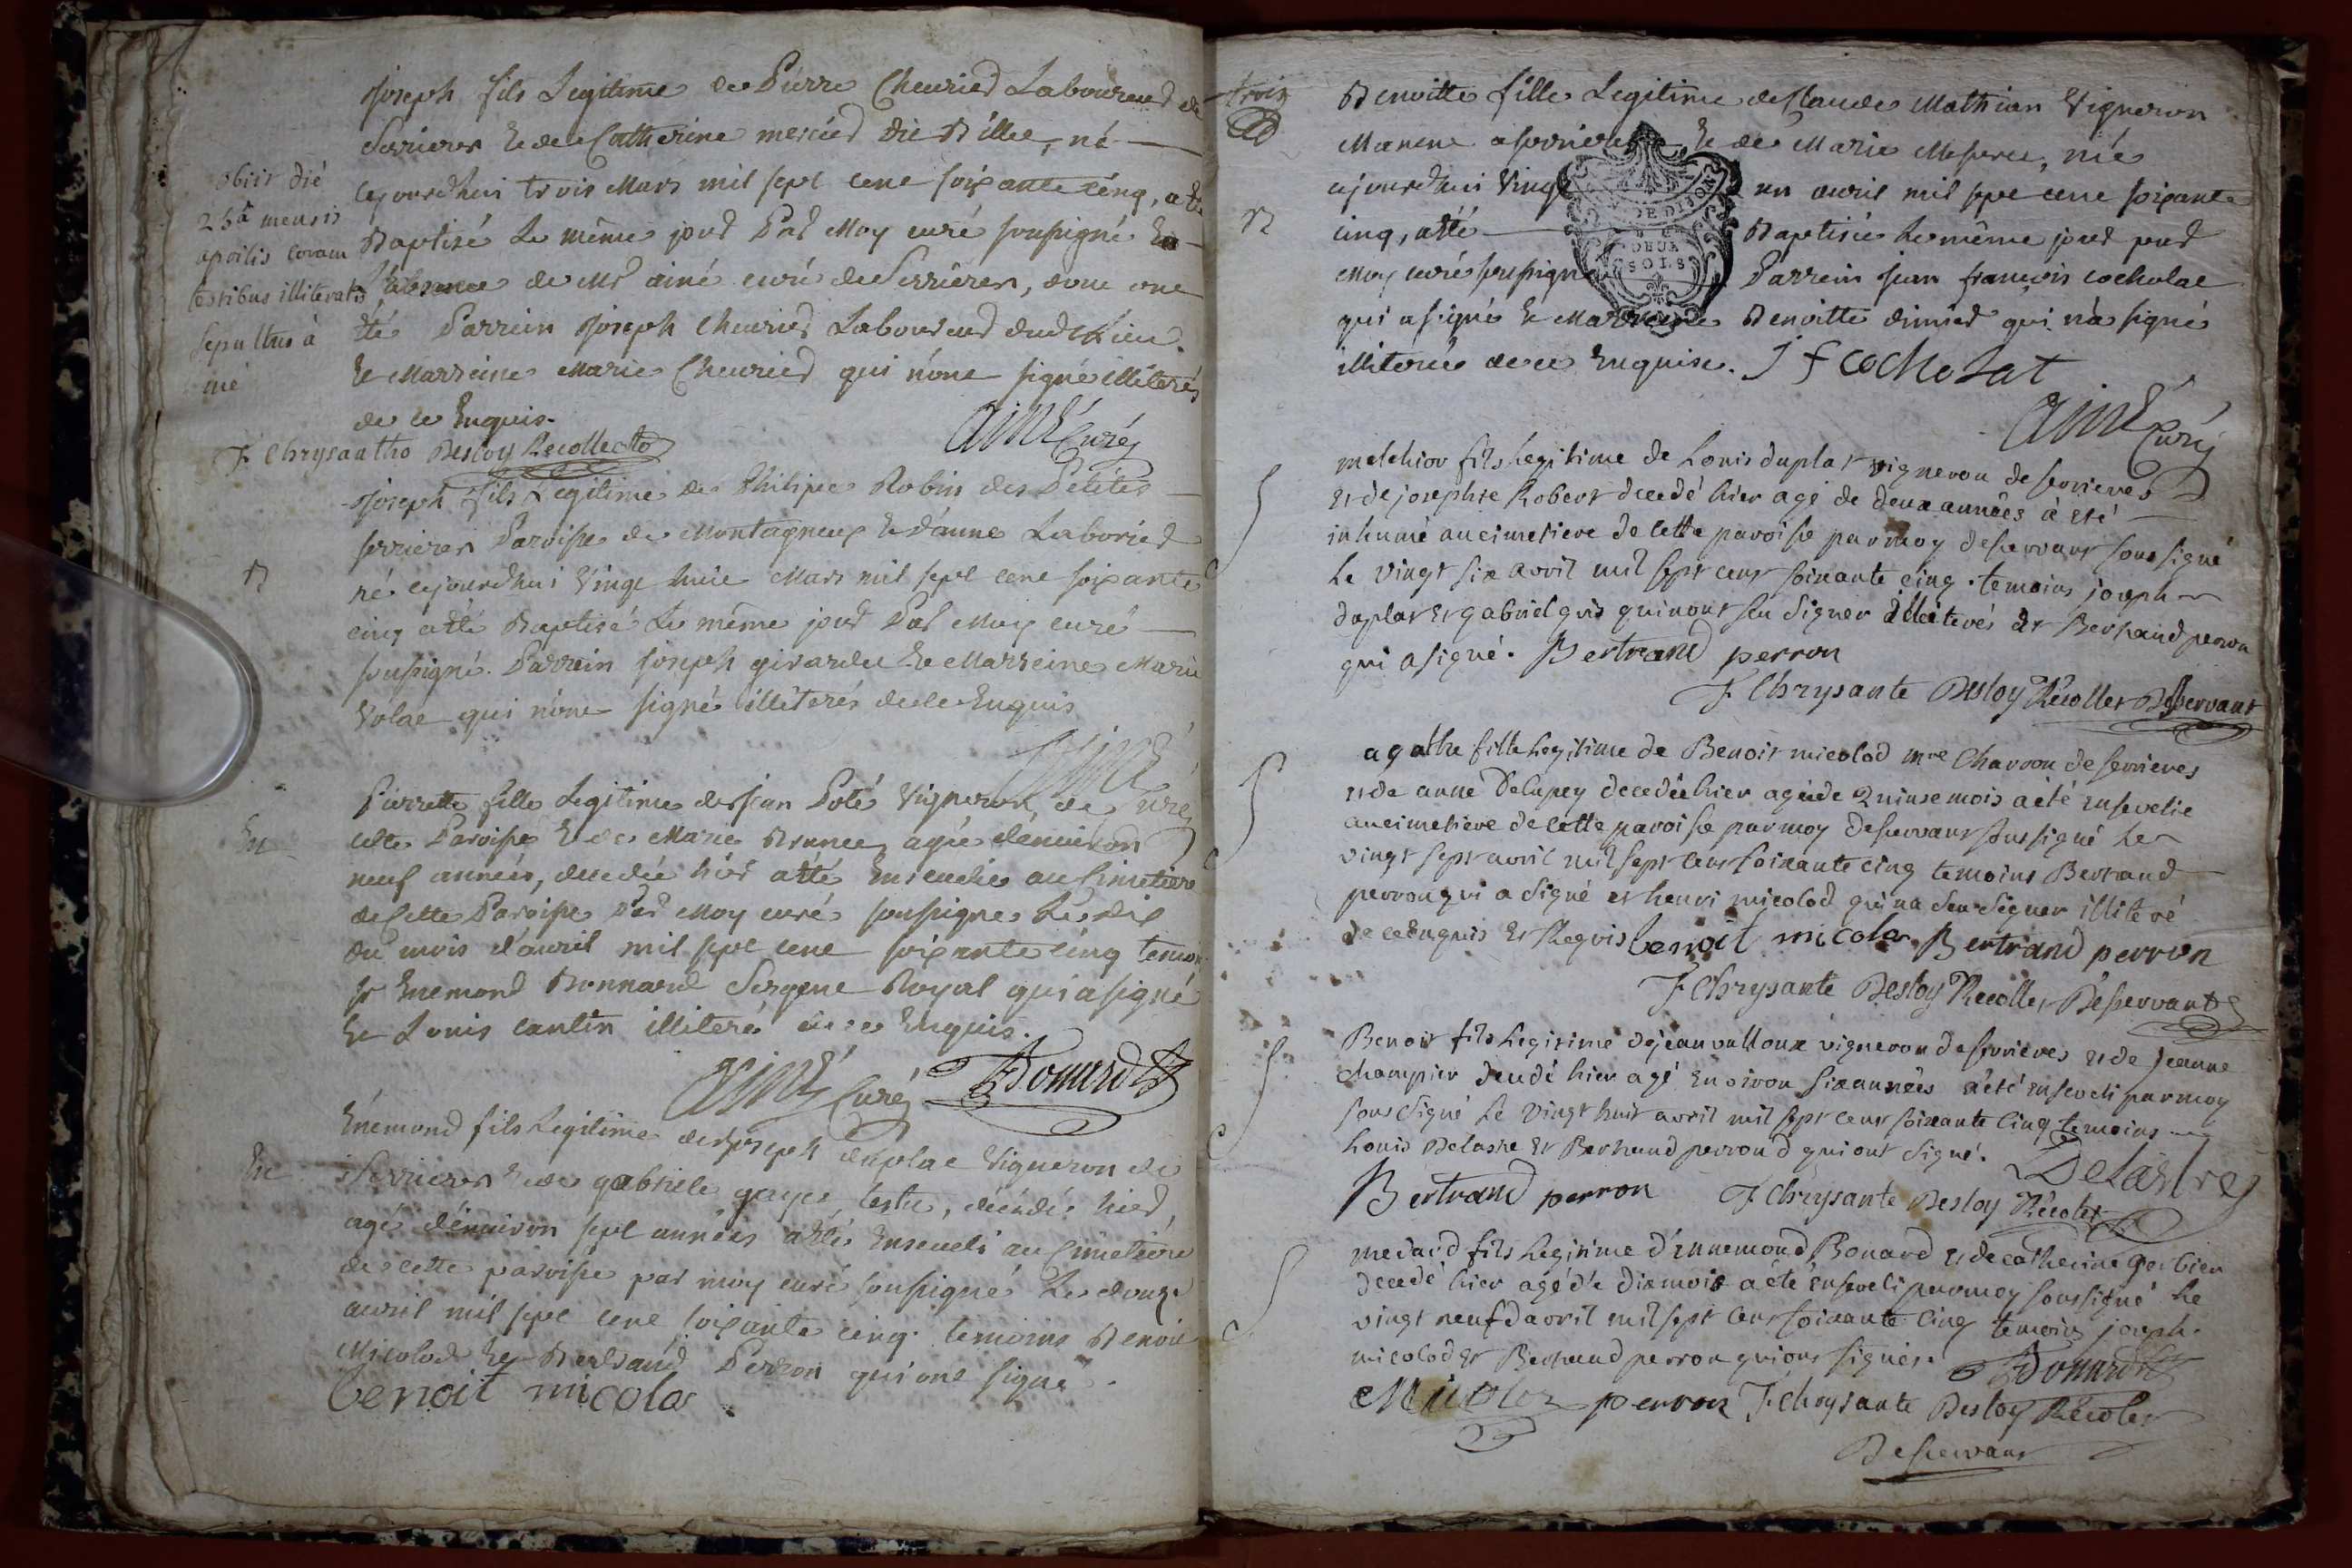 Joseph fils Legitime de Pierre Cheurier Laboureur de
Serrieres et de Catherine mercier dit Billet, né
cejourd'hui trois Mars mil sept cent soixante cinq, a été
Baptisé Le même jour Par Moy curé soussigné En
L'absence de Mr ainé curé de Serrières, dont
été Parrein Joseph Cheurier Laboureur dud Lieu.
et Marreine Marie Cheurier qui n'ont signé illiterés
de ce Enquis.
ainé Curé
obiit die
25a mensis
aprilis coram
testibus illiteratis
sepultus à
me
F. Chrysantho Desloy Recollecto
Joseph fils Legitime de Philipe Robin des Petites
serrieres Paroisse de Montagneux et d'anne Laborier
né cejourd'hui Vingt huit Mars mil sept cent soixante
B
cinq a été Baptisé Le même jour Par Moy curé
soussigné. Parrein Joseph girardet et Marreine Marie
Volat qui n'ont signé illiterés de ce Enquis
ainé Curé
Pierrette fille Legitime de Jean Poté Vigneron de
En
cette Paroisse et de Marie Brunet, agée d'environ
neuf années, decedée hier a été Ensevelie au Cimetiere
de Cette Paroisse Par Moy curé soussigné Le dix
du mois d'auril mil sept cent soixante cinq temoins
sr Enemond Bonnard Sergent Royal qui a signé
et Louis cantin illiteré de ce Enquis.
ainé Curé Bonard
Enemond fils Legitime de Joseph duplat Vigneron de
En
Serrieres et de gabriele gayet, decédé hier,
agé d'environ sept années a été Enseveli au Cimetiere
de cette paroisse par moy curé soussigné Le douze
auril mil sept cent soixante cinq. temoins Benoit
Micolod et Bertrand Perron qui ont signé.
benoit micolo
trois
Benoitte fille Legitime de Claude Mathian Vigneron
Manent a serrieres Et de Marie Messeret, née
cejourd'hui Vingt un auril mil sept cent soixante
B
cinq, a été Baptisée Le même jour par
Moy curé soussigné Parrein jean françois cocholat
qui a signé et Marreine Benoitte dimier qui n'a signé
illiterée de ce Enquise. J f cochoLat
DE DIJON
DEUX
SOLS
ainé Curé
melchior fils legitime de Louis duplat vigneron de serrieres
et de josephte Robert decedé hier agé de deux années à eté
inhumé au cimetiere de cette paroisse par moy desservant soussigné
le vingt six avril mil sept cent soixante cinq. temoins joseph
duplat et gabriel qui n'ont seu signer illiterés et Bertrand perron
qui a signé. Bertrand perron
F. Chrysante Desloy Récollet Desservant
agathe fille legitime de Benoit micolod mre Charron de serrieres
et de anne Delupey decedée hier agée de quinse mois a été ensevelie
au cimetiere de cette paroisse par moy desservant soussigné le
vingt sept avril mil sept cent soixante cinq temoins Bertrand
perron qui a signé et henri micolod qui n'a seu signer illiteré
de ce enquis et Requis benoit micolo Bertrand perron
F Chrysante Desloy Recollet Desservant
Benoit fils legitime de jean valloux vigneron de serrieres et de jeanne
champier decedé hier agé environ six années a été enseveli par moy
soussigné le vingt huit avril mil sept cent soixante cinq temoins
Louis Delastre et Bertrand perron qui ont signé. Delastre
Bertrand perron F Chrysante Desloy Récolet
medard fils legitime d'ennemond Bonard et de catherine gerbier
decedé hier agé de dix mois a été enseveli par moy soussigné le
vingt neuf d'avril mil sept cent soixante cinq temoins joseph
micolod et Bertrand perron qui ont signés. Bonard
Micoloz perron F. Chrysante Desloy Récolet
Desservant